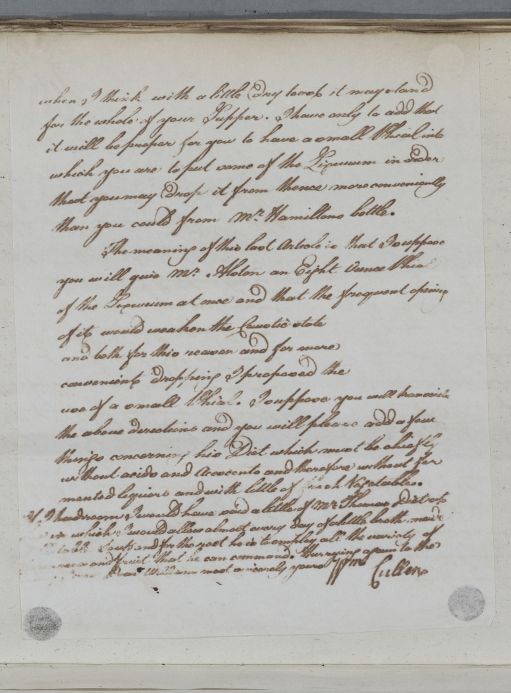 when I think with a little Dry loaf it may stand
for the whole of your Supper. I have only to add that
it will be proper for you to have a small Phial into
which you are to put some of the Lixivium in order
that you may Drop it from thence more conveniently
than you could from Mr. Hamiltons bottle.
The meaning of this last Article is that I suppose
you will give Mr. Alston an Eight Ounce Phial
of the Lixivium at once and that the frequent opening
of it would weaken the Caustic state
and both for this reason and for more
convenient dropping I proposed the
use of a small Phial. I suppose you will transcribe
the above directions and you will please add a few
things concerning his Diet which must be chiefly
without acids and Acescents and therefore without fer
mented liquors and with little of fresh Vegetables.
I would have said a little of Mr. Thomas Diet
in which I would allow almost every day of a little broth made
and for the rest he is to employ all the variety of
and fruit that he can command. Hurrying again to the
most sincerely yours Wm. Cullen